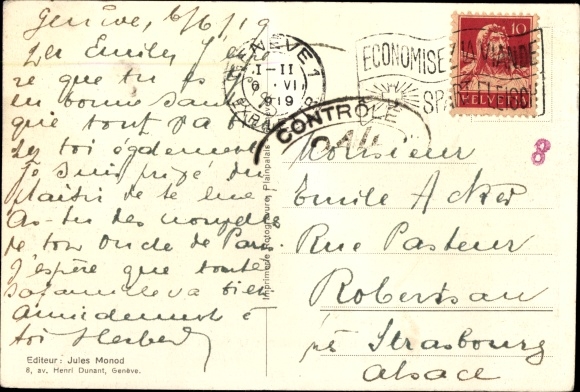 Genève, 6/6/19
Emile, J'espè
re que tu es
en bonne santé
que tout va
toi également
Je suis privé du
plaisir de te lire
As-tu des nouvelles
de ton oncle de Paris.
J'espère que toute
ta famille va bien
Amicalement à
toi Herbert
Editeur: Jules Monod
8, av. Henri Dunant, Genève.
Imprimerie Rotogravure, Plainpalais
GENÈVE 1
I-II
6.VI
1919
ECONOMISEZ LA VIANDE
10
HELVETIA
CONTRÔLE
8
Monsieur
Emile Acker
Rue Pasteur
Robertsau
près Strasbourg
Alsace